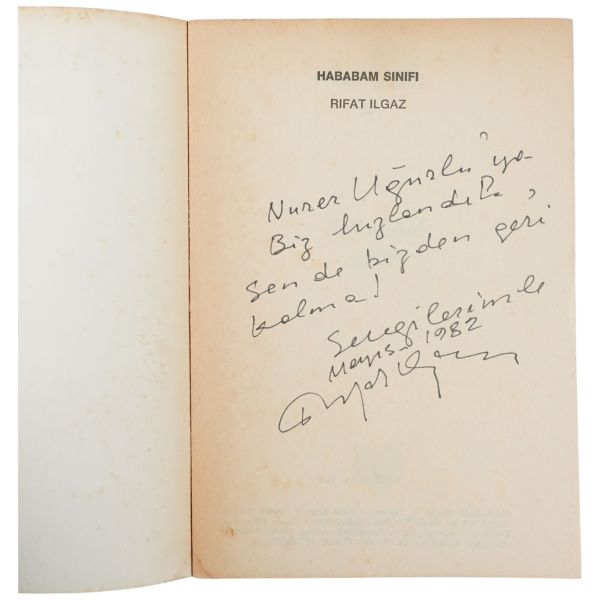 HABABAM SINIFI
RIFAT ILGAZ
Nurer Uğurlu'ya
Biz hızlandık,
Sen de bizden geri
kalma!
Sevgilerimle
Mayıs-1982
Rıfat Ilgaz